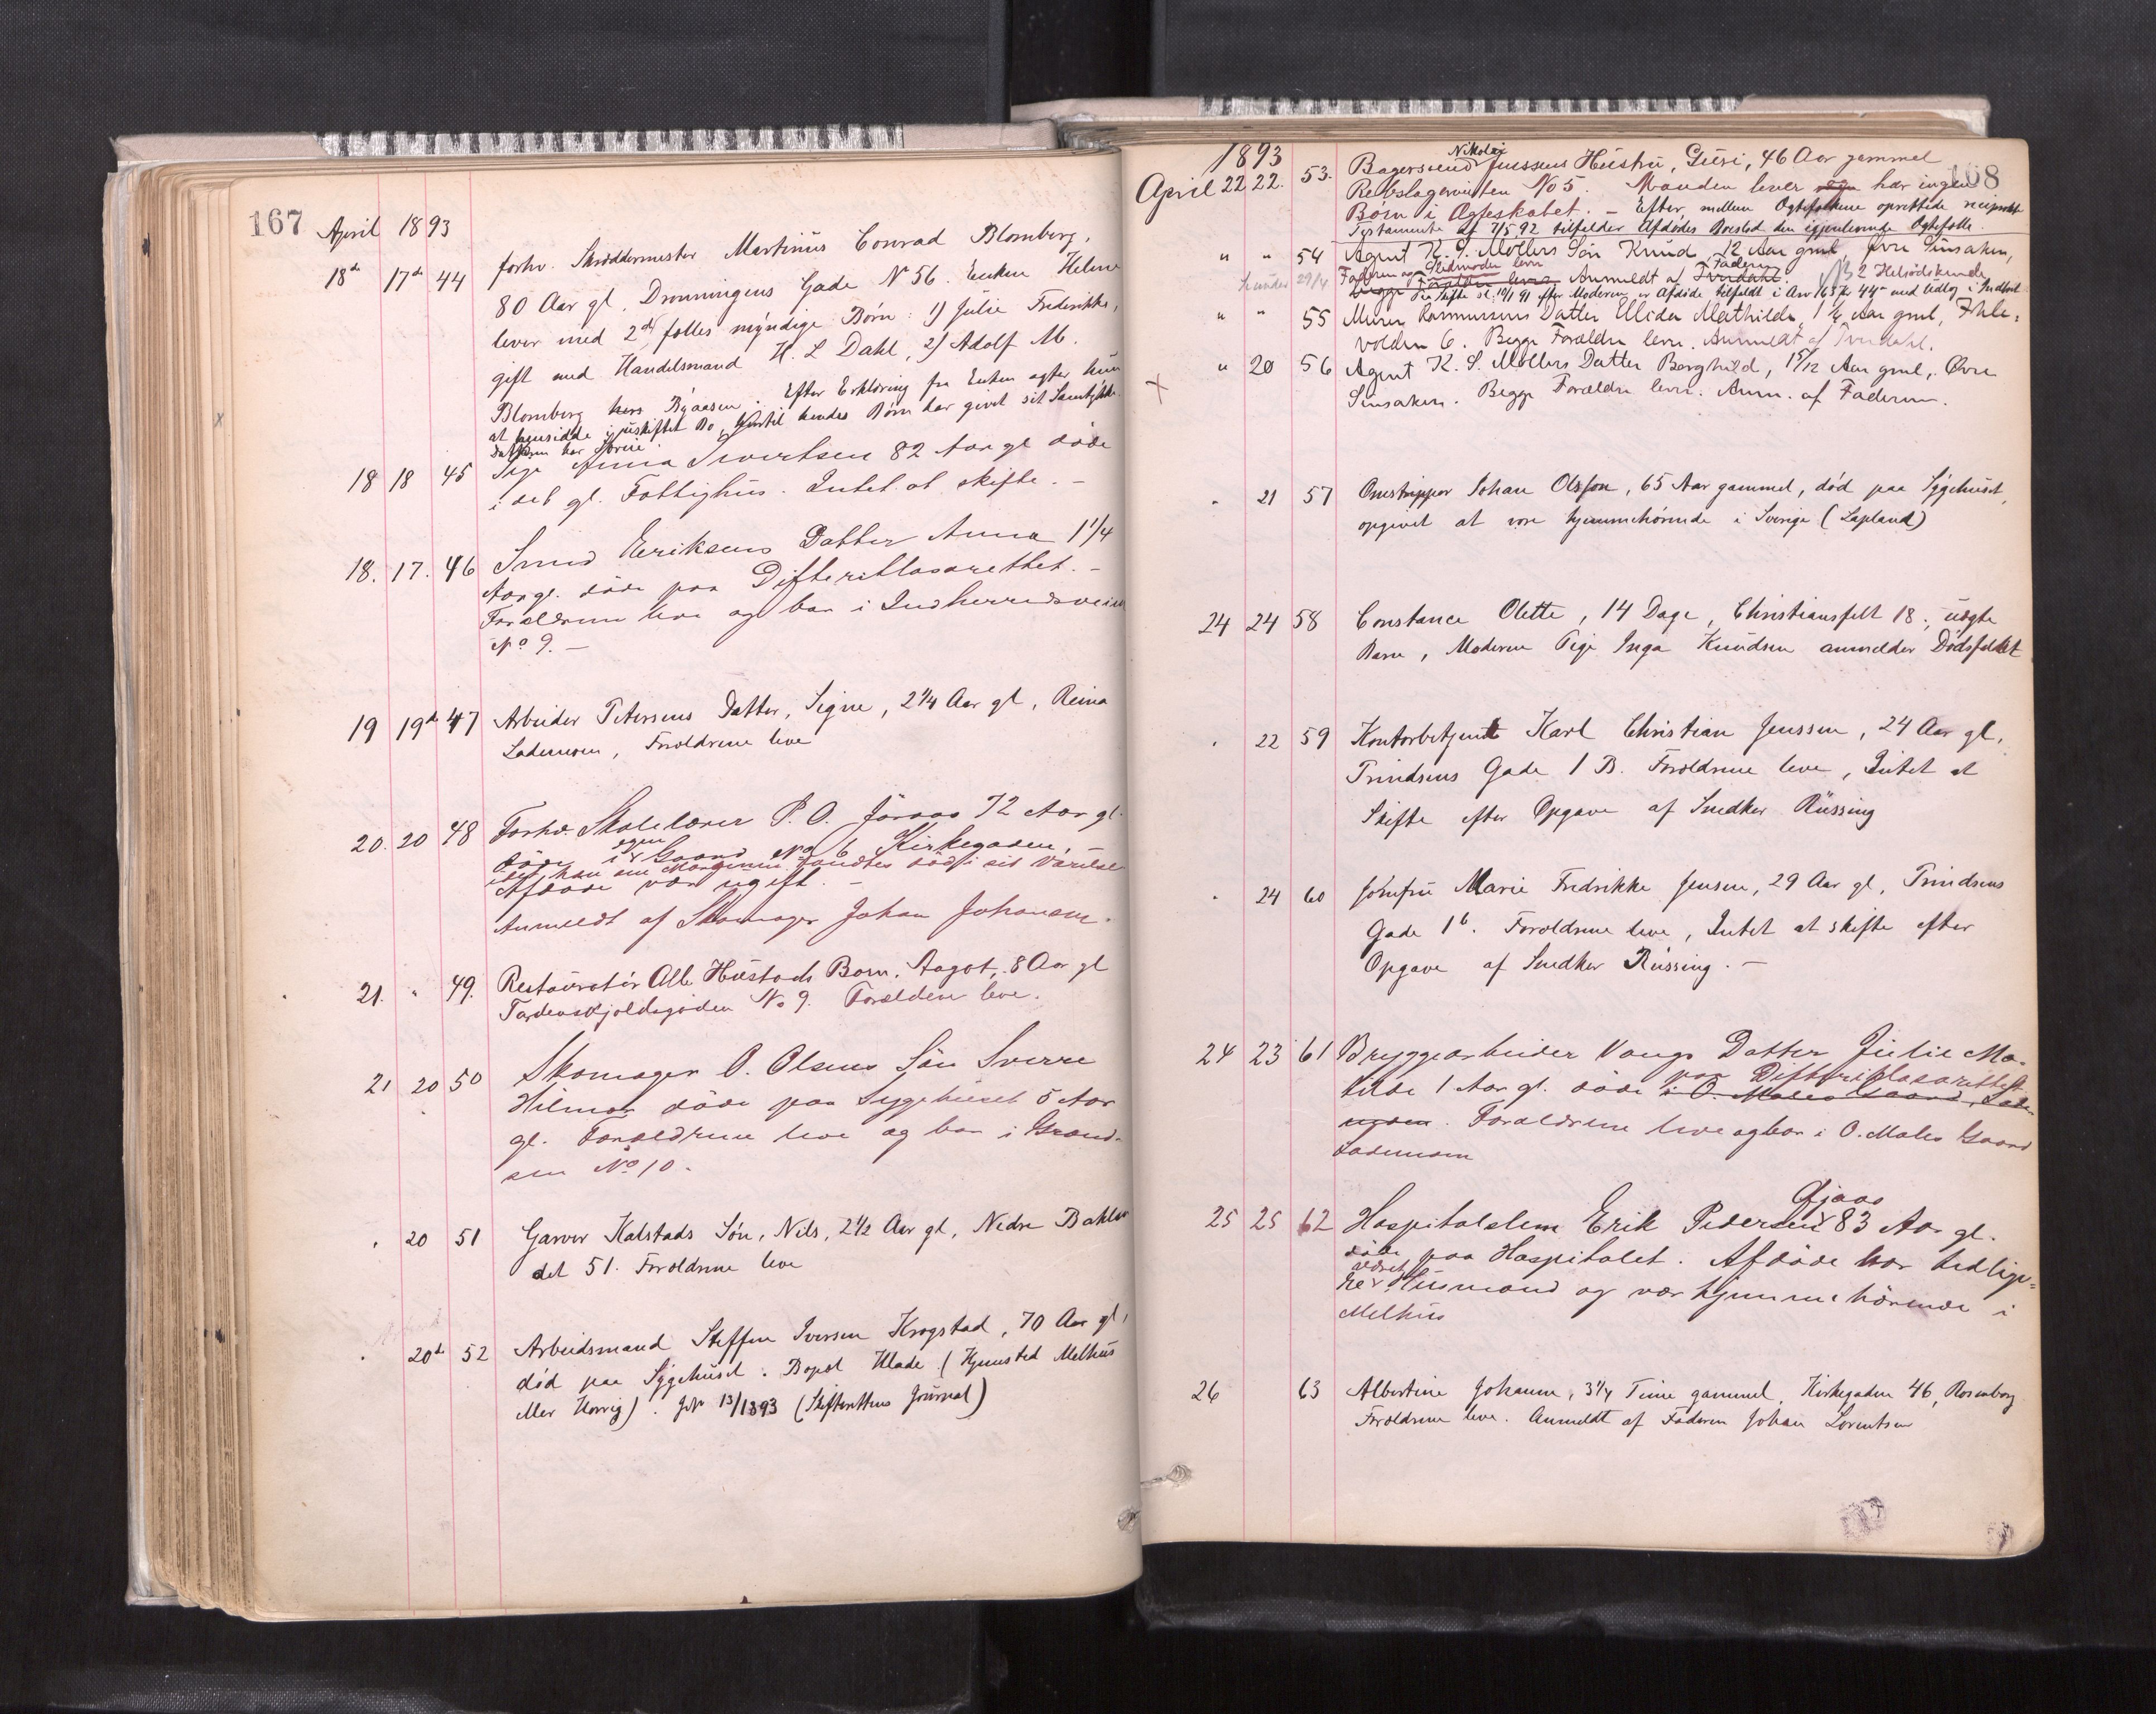 167 April 1893
18de 17de 44 forhv. Skræddermester Martinus Conrad Blomberg,
80 Aar gl. Dronningens Gade No 56. Enken Helene
lever med 2de fælles myndige Børn: 1) Julie Frederikke,
gift med Handelsmand H. L Dahl, 2) Adolf M.
Blomberg her Byaasen. Efter Erklæring fra Enken agter hun
at hensidde i uskiftet Bo, hvortil hendes Børn har givet sit Samtykke.
18 18 45 Pige Anna Sivertsen 82 Aar gl døde
i det gl. Fattighus. Intet at skifte. -
18. 17. 46 Smed Eeriksens Datter Anna 1 1/4
Aar gl. døde paa Difteritlasarettet. -
Forældrene leve og bor i Indherredsveien
No 9. -
19 19de 47 Arbeider Petersens Datter, Signe, 2 1/4 Aar gl, Reina
Lademoen, Forældrene leve
20. 20 48 Forhv. Skolelærer P. O. Jøraas 72 Aar gl.
døde i egen Gaard No 6 Kirkegaden,
idet han om Morgenen fandtes død i sit Værelse
Afdøde var ugift. -
Anmeldt af Skomager Johan Johansen.
21. " 49. Restauratør Alb. Hustads Barn, Aagot, 8 Aar gl
Tordenskjoldsgaden No 9. Forældrene leve.
21 20 50 Skomager O. Olsens Søn Sverre
Hilmar døde paa Sygehuset 5 Aar
gl. Forældrene leve og bor i Grænd-
sen No 10.
" 20 51 Garver Kalstads Søn, Nils, 2 1/2 Aar gl, Nedre Baklan
det 51. Forældrene leve
" 20de 52 Arbeidsmand Steffen Iversen Krogstad, 70 Aar gl,
død paa Sygehuset. Bopæl Ihlade (Hjemsted Melhus
eller Horrig). 13/1893 (Skifterettens Journal)
168
1893
April 22 22. 53. Bagersvend Nikolai Jenssens Hustru, Guri, 46 Aar gammel
Rebslagerveiten No 5. Manden lever har ingen
Børn i Ægteskabet. - Efter mellem Ægtefolkene oprettede reciprokt
Testamente af 7/5 92 tilfalder Afdødes Boeslod den gjenlevende Ægtefælle.
" " 54 Agent K. S. Møllers Søn Knud 12 Aar gml, Øvre Sinsaken,
Faderen og Stedmoder leve
begge Forældre leve. Anmeldt af Faderen Tverdahl. 2 Helsødskende
" " 55 Murer Rasmussens Datter Elida Mathilde, 1 1/4 Aar gml, Ihle-
volden 6. Begge Forældre leve. Anmeldt af Tverdahl.
" 20 56 Agent K. S. Møllers Datter Borghild, 1 5/12 Aar gml, Øvre
Sinsaken. Begge Forældre leve. Anm. af Faderen.
" 21 57 Omstripper Johan Olsson, 65 Aar gammel, død paa Sygehuset,
opgivet at være hjemmehørende i Sverige (Lapland)
24 24 58 Constance Olette, 14 Dage, Christiansfelt 18., uægte
Barn, Moderen Pige Inga Knudsen anmelder Dødsfaldet
" 22 59 Kontorbetjent Karl Christian Jenssen, 24 Aar gl,
Trindsens Gade 1 B. Forældrene leve, Intet at
Skifte efter Opgave af Snedker Rüssing
" 24 60 Jomfru Marie Fredrikke Jensen, 29 Aar gl, Trindsens
Gade 1b. Forældrene leve, Intet at skifte efter
Opgave af Snedker Rüssing. -
24 23 61 Bryggearbeider Vangs Datter Julie Ma-
tilde 1 Aar gl. døde paa Difteritlasarettet i O. Moles Gaard, Lade-
moen. Forældrene leve og bor i O. Moles Gaard
Lademoen
25 25 62 Hospitalslem Erik Pedersen Gjaas 83 Aar gl.
døde paa Hospitalet. Afdøde har tidlige-
re været Husmand og var hjemmehørende i
Melhus
26 63 Albertine Johanne, 3 1/4 Time gammel, Kirkegaden 46, Rosenborg
Forældrene leve. Anmeldt af Faderen Johan Lorentsen